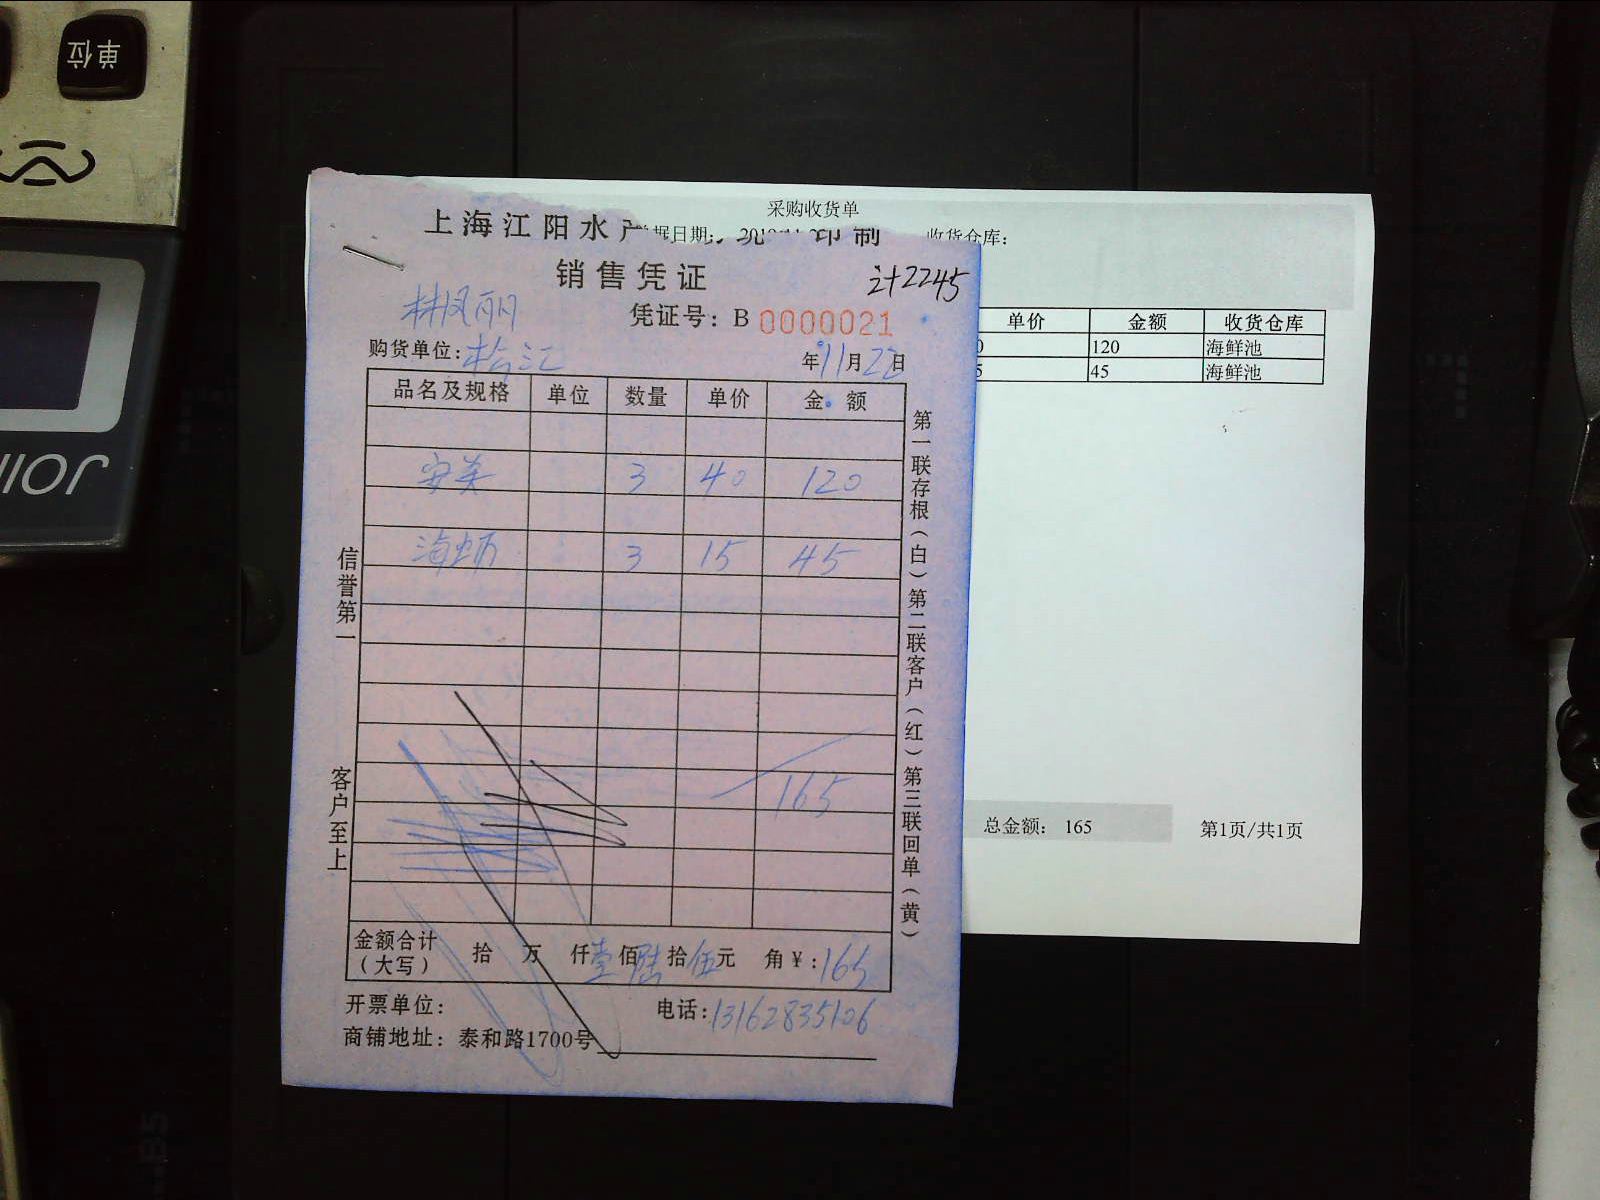 单位
JOIN
采购收货单
上海江阳水产
单据日期:
印制
收货仓库:
销售凭证
计2245
林凤丽
凭证号: B 0000021
购货单位: 松江
年11月22日
单价 金额 收货仓库
0 120 海鲜池
5 45 海鲜池
品名及规格 单位 数量 单价 金额
3 40 120
海蛎 3 15 45
165
信誉第一
客户至上
第一联存根(白)第二联客户(红)第三联回单(黄)
总金额: 165 第1页/共1页
金额合计(大写) 拾 万 仟壹佰陆拾伍元 角¥:165
开票单位: 电话:13162835106
商铺地址: 泰和路1700号